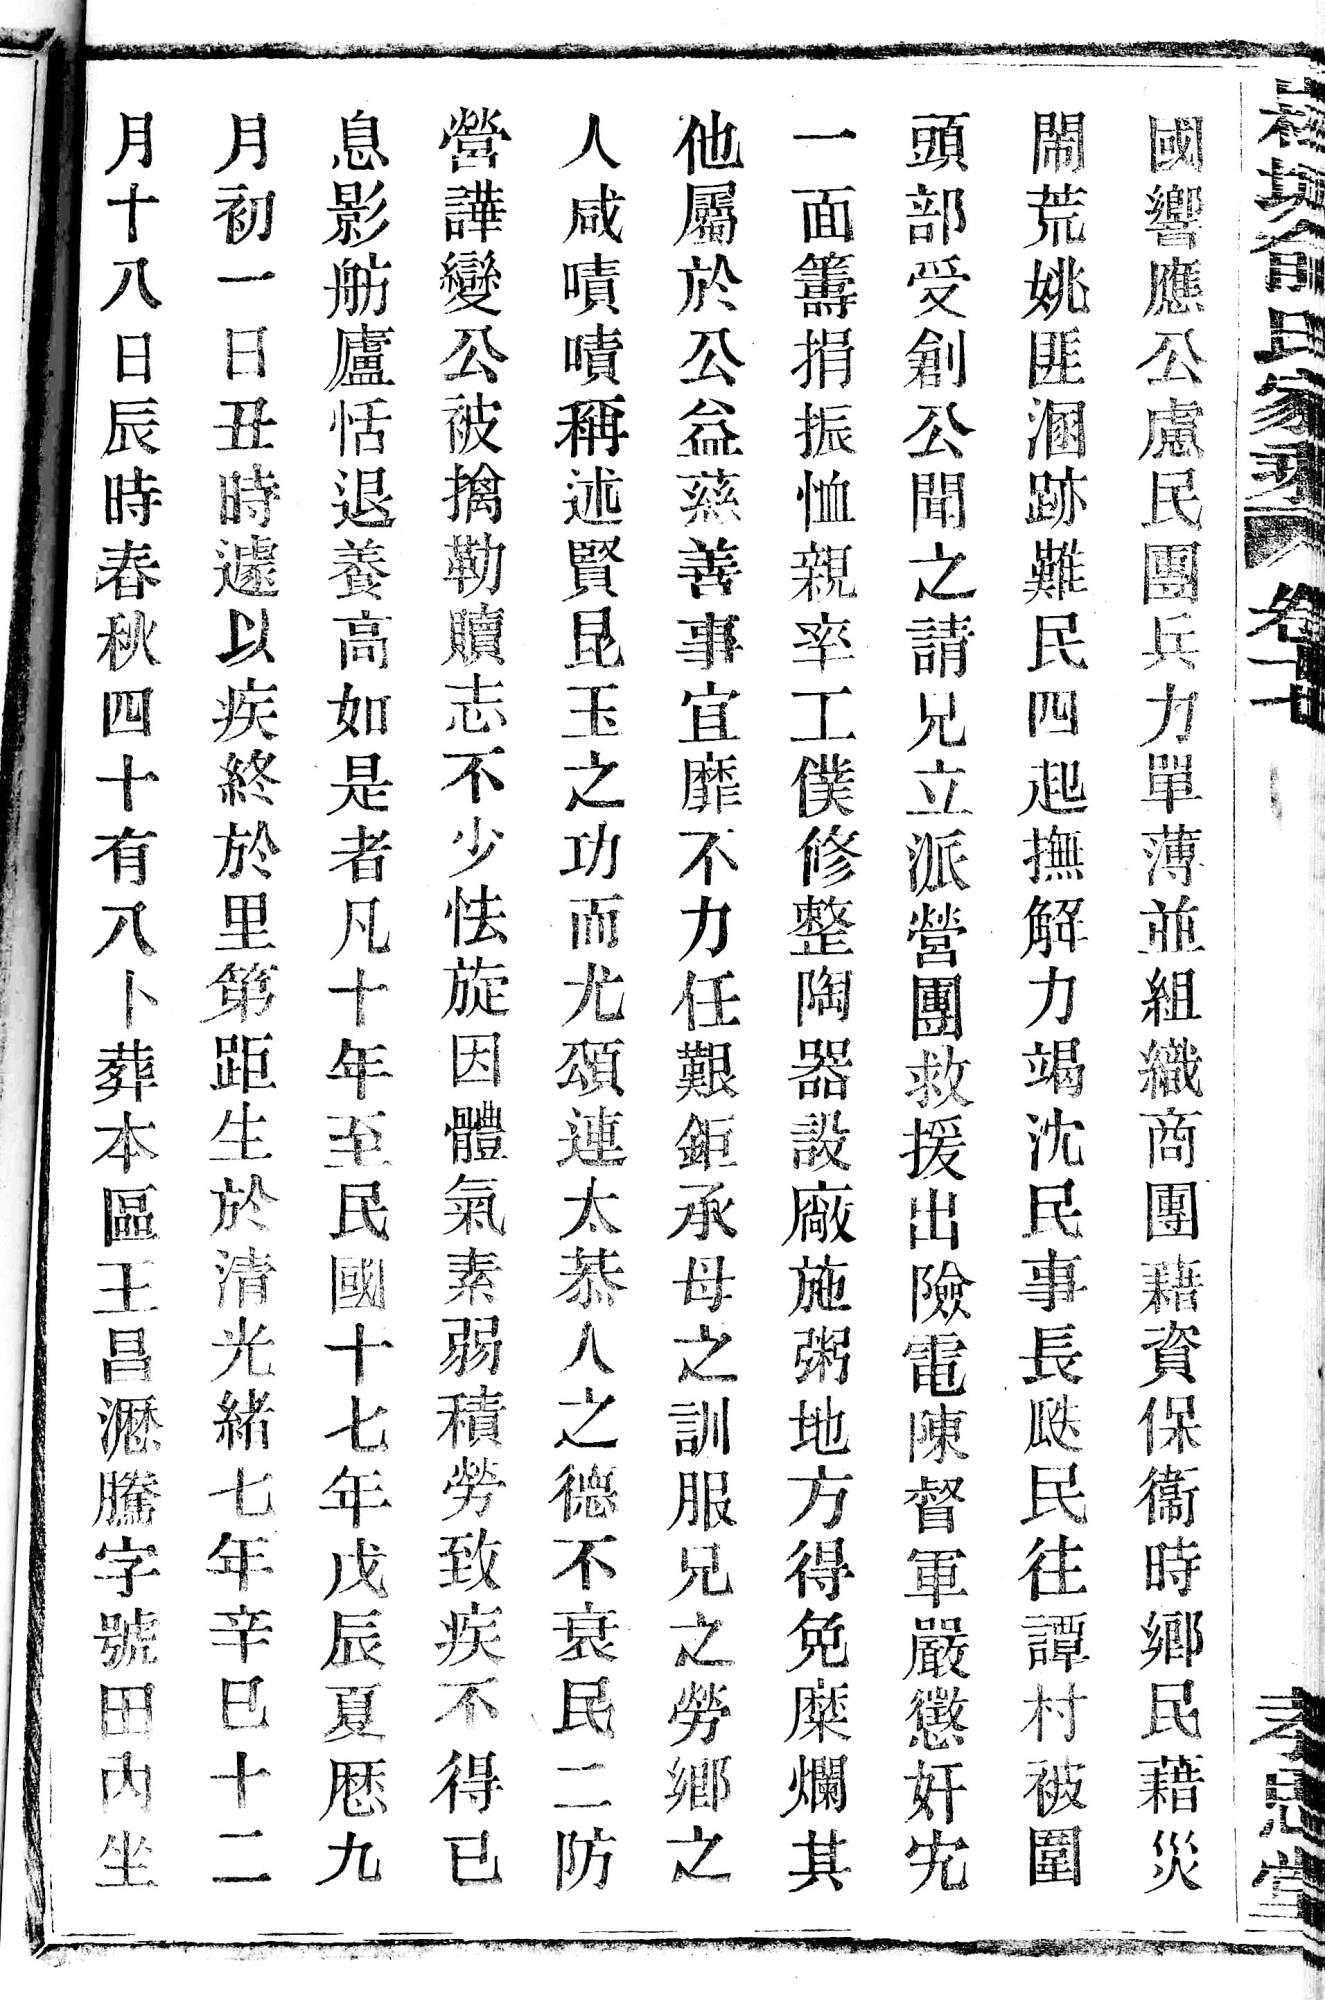 俞氏家乘 卷七
孝思堂
國響應公慮民團兵力單薄並組織商團藉資保衞時鄉民藉災
鬧荒姚匪溷跡難民四起撫解力竭沈民事長瞇民往譚村被圍
頭部受創公聞之請兄立派營團救援出險電陳督軍嚴懲奸宄
一面籌捐振恤親率工僕修整陶器設廠施粥地方得免糜爛其
他屬於公益慈善事宜靡不力任艱鉅承母之訓服兄之勞鄉之
人咸嘖嘖稱述賢昆玉之功而尤頌連太恭人之德不衰民二防
營譁變公被擒勒贖志不少怯旋因體氣素弱積勞致疾不得已
息影舫廬恬退養高如是者凡十年至民國十七年戊辰夏厯九
月初一日丑時遽以疾終於里第距生於清光緒七年辛巳十二
月十八日辰時春秋四十有八卜葬本區王昌瀝騰字號田內坐